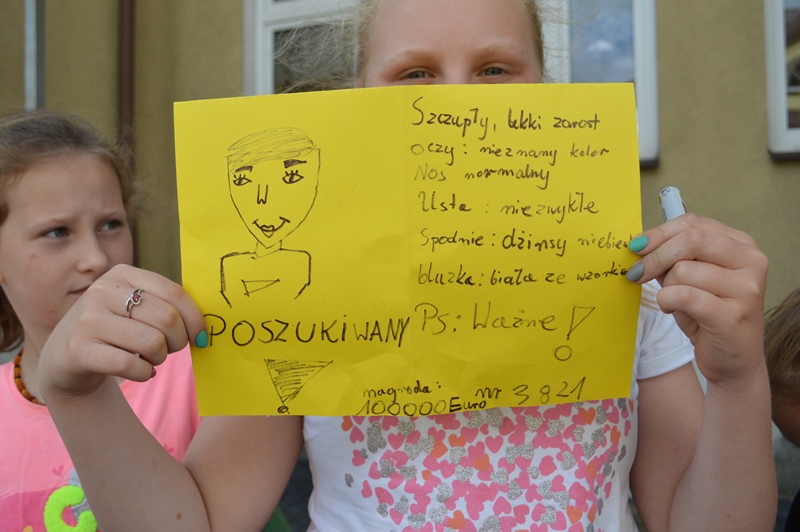 POSZUKIWANY
Szczupły, lekki zarost
oczy: nieznany kolor
Nos normalny
Usta: niezwykłe
Spodnie: dżinsy niebie
bluzka: biała ze wzorkie
Ps: Ważne!
nagroda:
100000 Euro
nr 3821